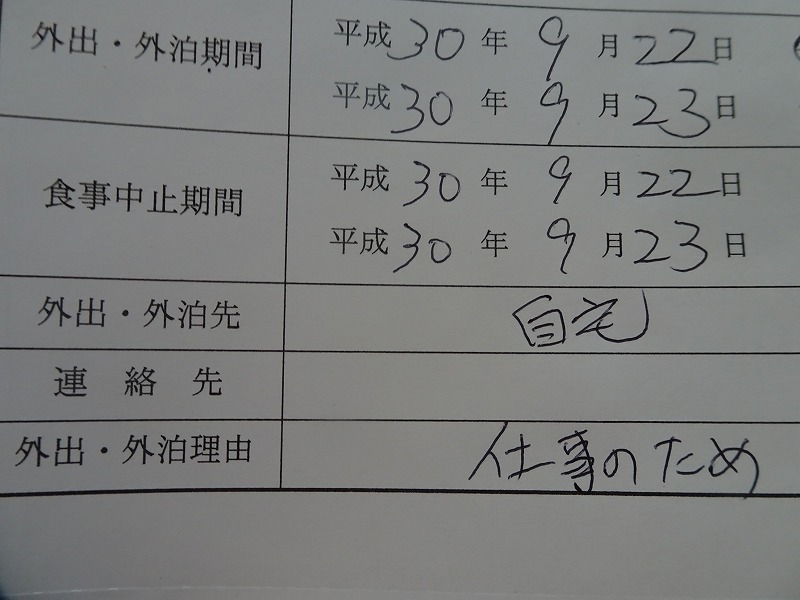 外出・外泊期間 平成30年9月22日
平成30年9月23日
食事中止期間 平成30年9月22日
平成30年9月23日
外出・外泊先 自宅
連絡先
外出・外泊理由 仕事のため